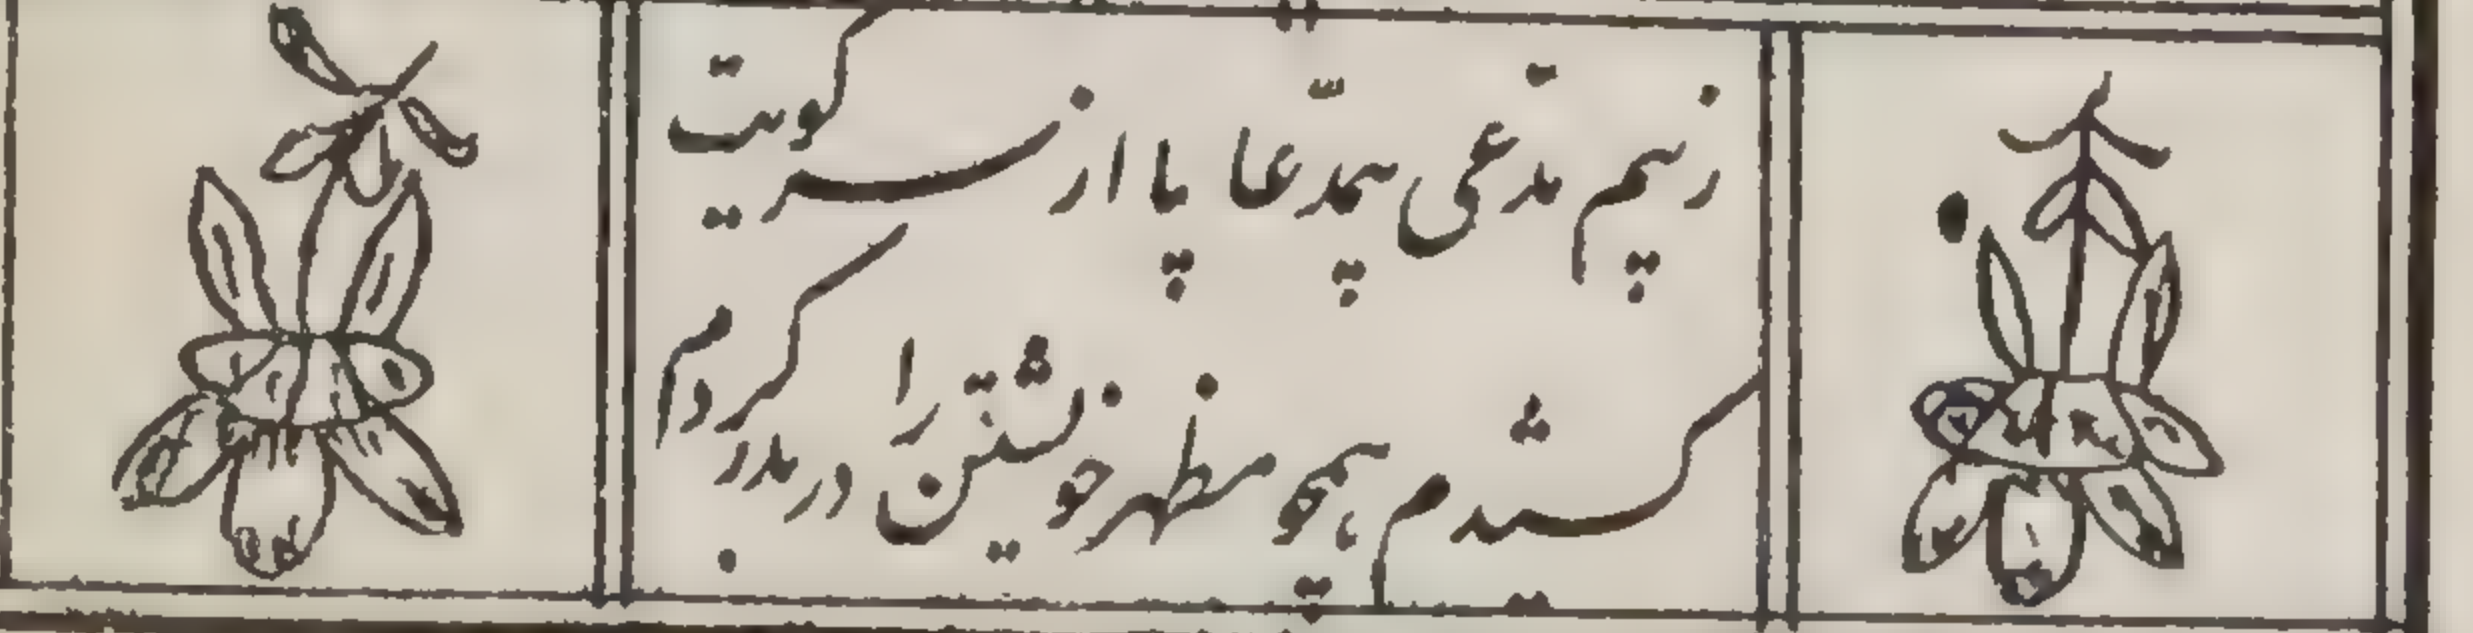 ز بیم مدّعی بیمدّعا پا از سر کویت
کشیدم همچو مظهر خویشتن را دربدر کردم